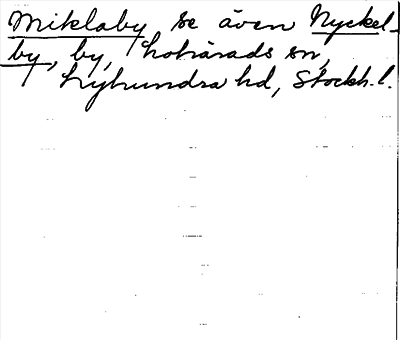 Miklaby se även Nyckel-
by, by, Lohärads sn,
Lyhundra hd, Stockh. l.